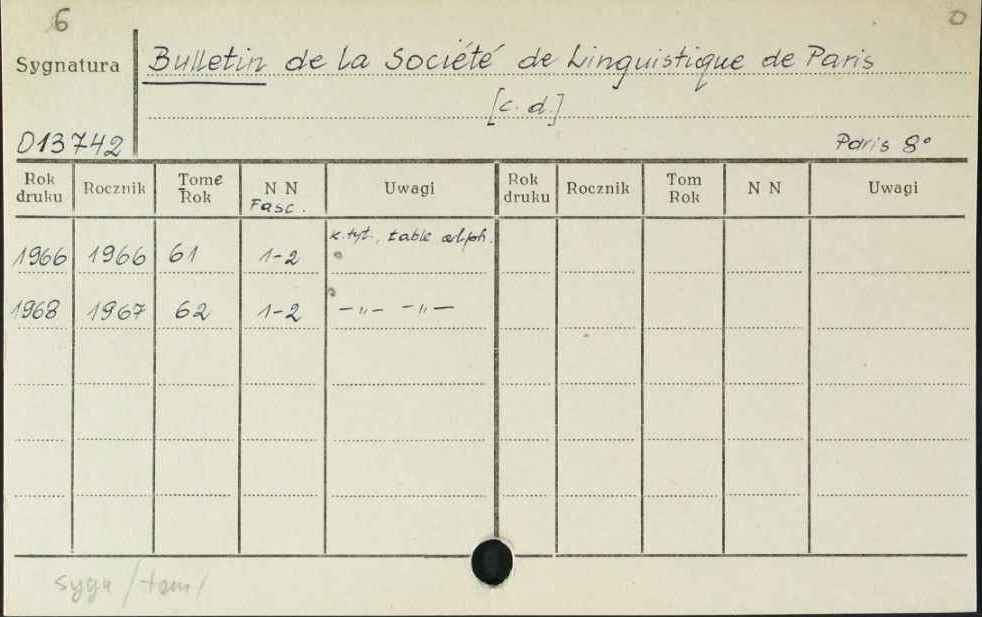 6
Sygnatura Bulletin de la Société de Linguistique de Paris
[c. d.]
D13742 Paris 8°
Rok druku Rocznik Tome Rok NN Fasc. Uwagi Rok druku Rocznik Tom Rok NN Uwagi
k. tyt., table alph.
1966 1966 61 1-2
1968 1967 62 1-2 -"- -"-
sygn /tom/